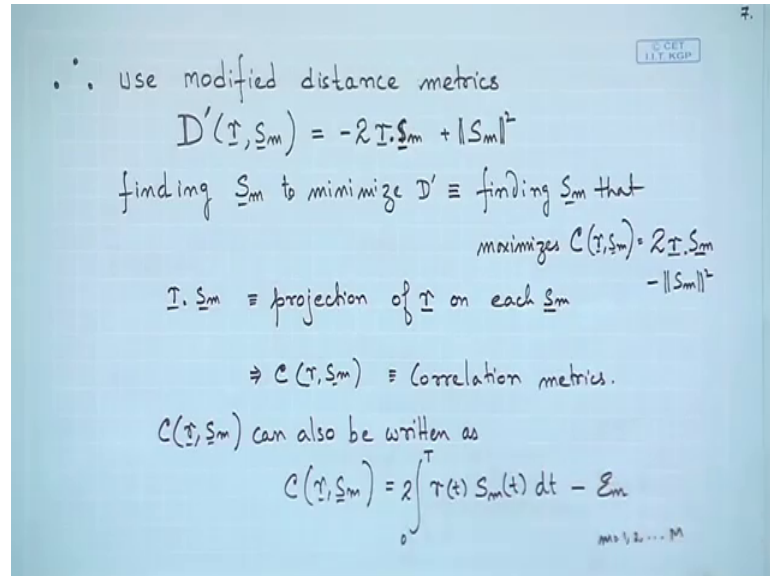 7.
© CET
I.I.T. KGP
∴ use modified distance metrics
D'(r, Sm) = -2 r.Sm + ||Sm||²
finding Sm to minimize D' ≡ finding Sm that
maximizes C(r,Sm) = 2r.Sm
- ||Sm||²
r. Sm ≡ projection of r on each Sm
⇒ C(r, Sm) ≡ Correlation metrics.
C(r, Sm) can also be written as
C(r, Sm) = 2 ∫₀ᵀ r(t) Sm(t) dt - Ɛm
m=1,2 ... M